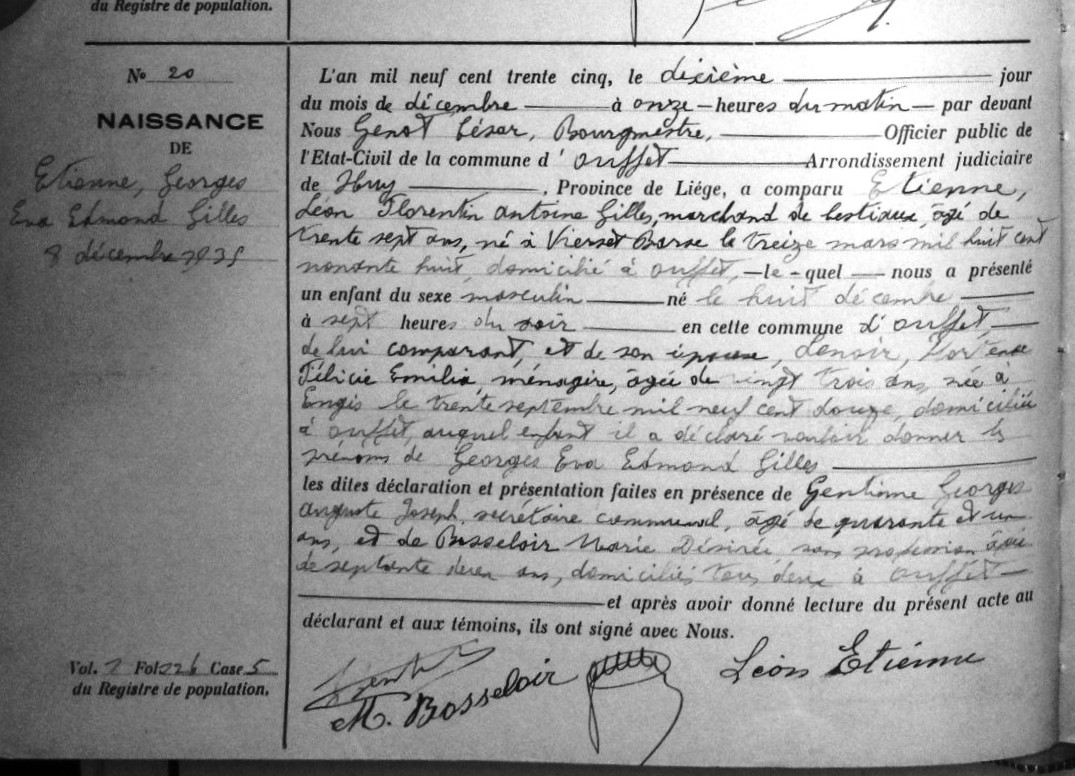 du Registre de population.
No 20
NAISSANCE
DE
Etienne, Georges
Eva Edmond Gilles
8 décembre 1935
L'an mil neuf cent trente cinq, le dixième jour
du mois de décembre à onze heures du matin par devant
Nous Genot César, Bourgmestre, Officier public de
l'Etat-Civil de la commune d' Ouffet Arrondissement judiciaire
de Huy, Province de Liége, a comparu Etienne,
Léon Florentin Antoine Gilles, marchand de bestiaux, âgé de
trente sept ans, né à Vierset Barse le treize mars mil huit cent
nonante huit, domicilié à Ouffet, le-quel nous a présenté
un enfant du sexe masculin né le huit décembre
à sept heures du soir en cette commune d'Ouffet,
de lui comparant, et de son épouse, Lenoir, Hortense
Félicie Emilia, ménagère, âgée de vingt trois ans, née à
Engis le trente septembre mil neuf cent douze, domiciliée
à Ouffet, auquel enfant il a déclaré vouloir donner les
prénoms de Georges Eva Edmond Gilles
les dites déclaration et présentation faites en présence de Georges
Auguste Joseph, secrétaire communal, âgé de quarante et un
ans, et de Bosseloir Marie Désirée sans profession âgée
de septante deux ans, domiciliés tous deux à Ouffet
et après avoir donné lecture du présent acte au
déclarant et aux témoins, ils ont signé avec Nous.
M. Bosseloir
Léon Etienne
Vol. 2 Fol. 226 Case 5
du Registre de population.